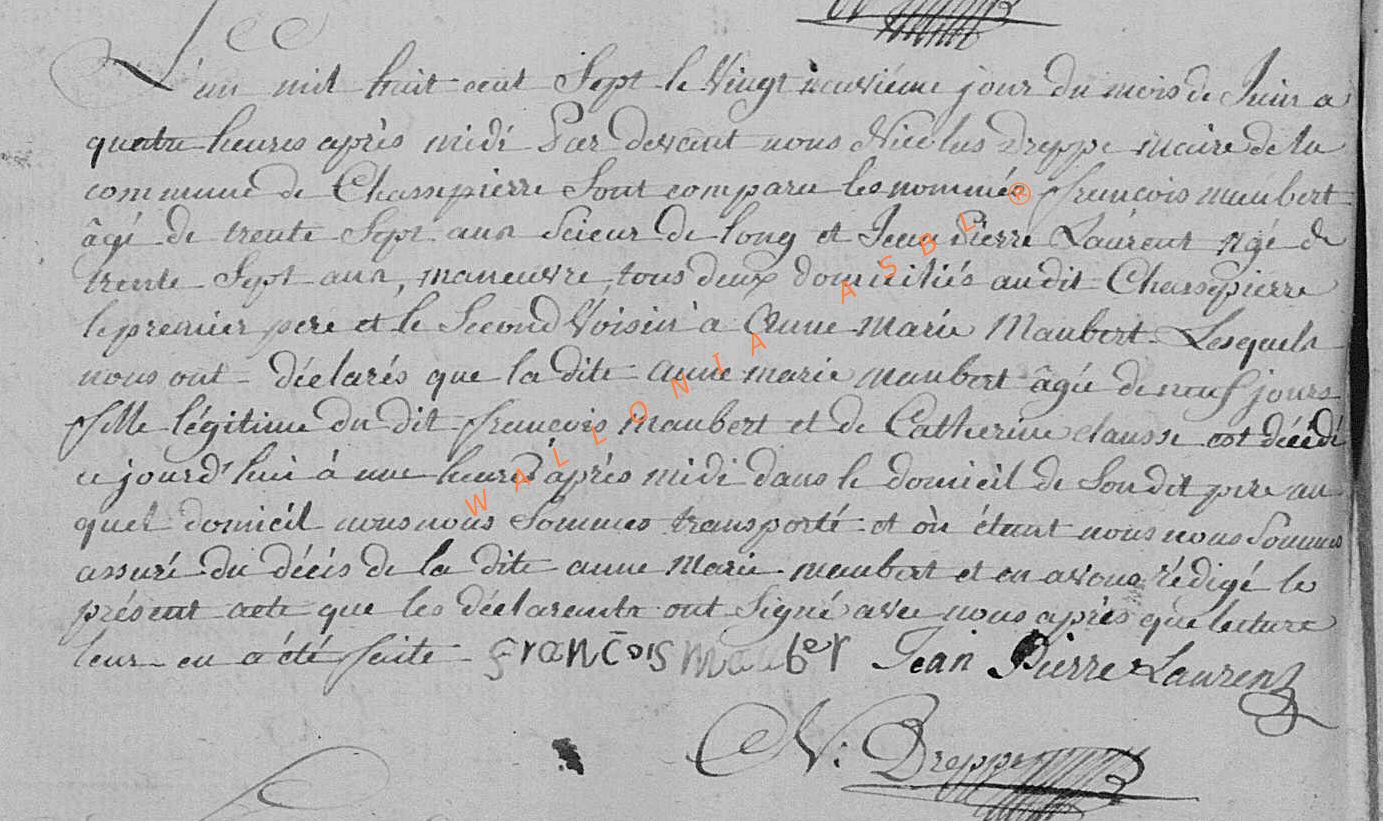 L'an mil huit cent Sept le Vingt neuvième jour du mois de Juin a
quatre heures après midi Par devant nous Nicolas Dreppe maire de la
commune de Chassepierre Sont comparu les nommés françois maubert
âgé de trente Sept ans Scieur de long et Jean Pierre Laurent Agé de
trente Sept ans, maneuvre, tous deux domiciliés au dit Chassepierre
le premier pere et le Second Voisin a Anne Marie Maubert Lesquels
nous ont déclarés que la dite anne marie maubert âgée de neuf jours
fille légitime du dit françois maubert et de Catherine clausse est décédé
ce jourd'hui à une heure après midi dans le domicil de Son dit pere au
quel domicil nous nous Sommes transporté et où étant nous nous Sommes
assuré du décès de la dite anne Marie maubert et en avons rédigé le
présent acte que les déclarants ont Signé avec nous après que lecture
leur en a été faite françois mauber Jean Pierre Laurent
N: Dreppe
WALLONIA ASBL ®